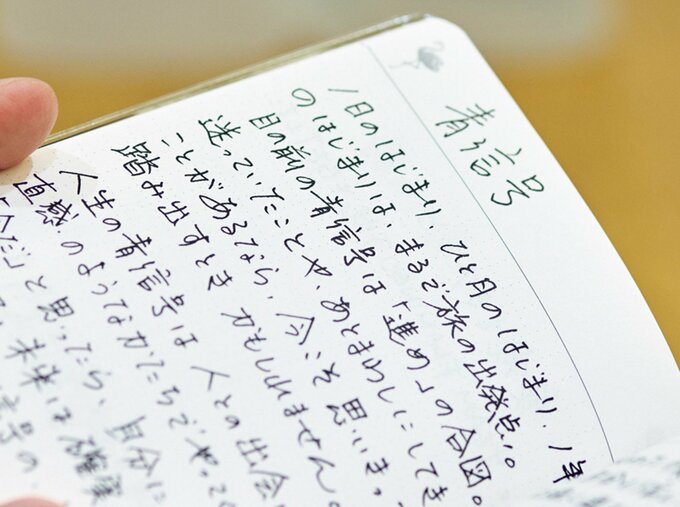 青信号
1日のはじまり、ひと月のはじまり、1年
のはじまりは、まるで旅の出発点。
目の前の青信号は「進め」の合図。
迷っていたことや、あとまわしにしてき
ことがあるなら、今こそ思いき
踏み出すときかもしれません。
人生の青信号は人との出会
直感のようなかたちでやって
と思ったら、自分に
未来は確実
号の